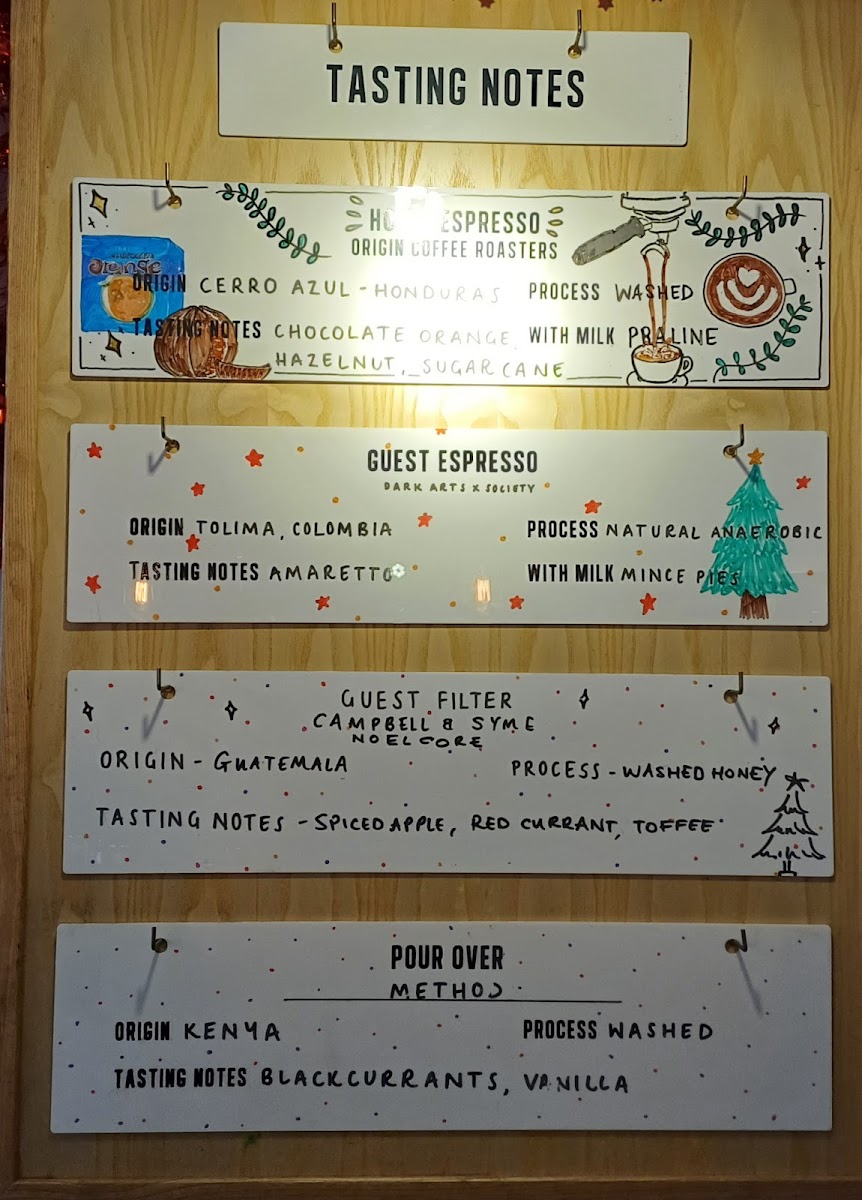 TASTING NOTES
ESPRESSO
ORIGIN COFFEE ROASTERS
Orange
ORIGIN CERRO AZUL - HONDURAS PROCESS WASHED
TASTING NOTES CHOCOLATE ORANGE, WITH MILK PRALINE
HAZELNUT, SUGAR CANE
GUEST ESPRESSO
DARK ARTS X SOCIETY
ORIGIN TOLIMA, COLOMBIA PROCESS NATURAL ANAEROBIC
TASTING NOTES AMARETTO WITH MILK MINCE PIES
GUEST FILTER
CAMPBELL & SYME
NOEL CORE
ORIGIN - GUATEMALA PROCESS - WASHED HONEY
TASTING NOTES - SPICED APPLE, RED CURRANT, TOFFEE
POUR OVER
METHOD
ORIGIN KENYA PROCESS WASHED
TASTING NOTES BLACKCURRANTS, VANILLA